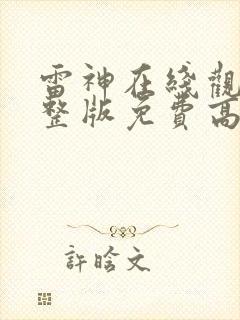 雷神在綫觀
整版免費高
許晗文